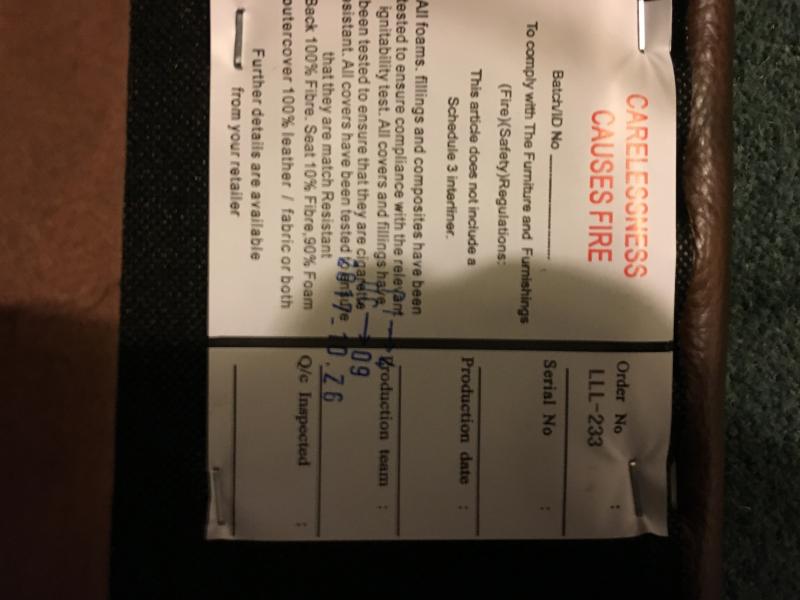 CARELESSNESS
CAUSES FIRE
Batch/ID No
To comply with The Furniture and Furnishings
(Fire)(Safety)Regulations:
This article does not include a
Schedule 3 interliner.
All foams. fillings and composites have been
tested to ensure compliance with the relevant
ignitability test. All covers and fillings have
been tested to ensure that they are cigarette
esistant. All covers have been tested to ensure
that they are match Resistant
Back 100% Fibre. Seat 10% Fibre,90% Foam
outercover 100% leather / fabric or both
Further details are available
from your retailer
Order No :
LLL-233
Serial No :
Production date :
Production team :
09
10.26
Q/c Inspected :